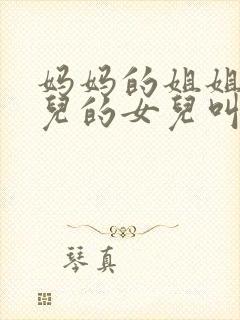 妈妈的姐姐
兒的女兒叫
琴真